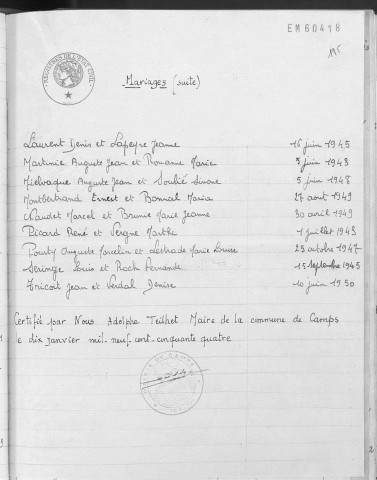 EM60418
115
REGISTRES DE L'ETAT CIVIL
Mariages (suite)
Laurent Denis et Lafeyre Jeanne 16 juin 1945
Martinie Auguste Jean et Rouanne Marie 5 juin 1948
Mielvaque Auguste Jean et Soulié Simone 5 juin 1948
Montbertrand Ernest et Bonval Maria 27 aout 1949
Naudet Marcel et Brunie Marie Jeanne 30 avril 1949
Picard René et Vergne Marthe 1 juillet 1948
Pourty Auguste Marcelin et Lestrade Marie Louise 23 octobre 1947
Seringe Louis et Roch Fernande 15 septembre 1945
Tricoit Jean et Verdal Denise 10 juin 1950
Certifié par Nous Adolphe Teilhet Maire de la commune de Camps
le dix janvier mil neuf cent cinquante quatre